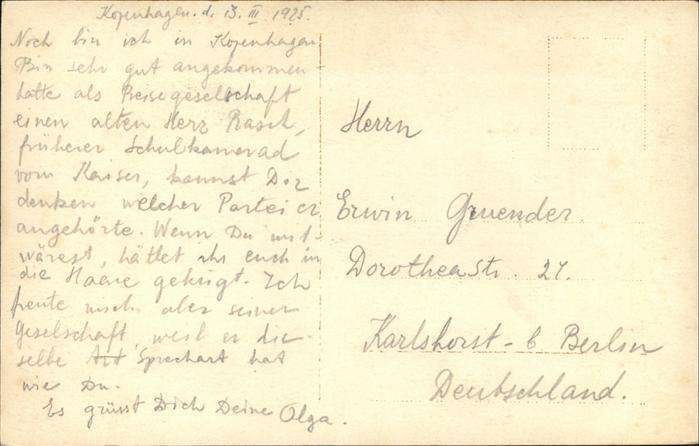 Kopenhagen. d. 13. III 1925.
Noch bin ich in Kopenhagen
Bin sehr gut angekommen
hatte als Reisegesellschaft
einen alten Herr Rasch,
früherer Schulkamerad
vom Kaiser, kannst Dir
denken welcher Partei er
angehörte. Wenn Du mit
wärest, hättet ihr euch in
die Haare gekriegt. Ich
freute mich aber seiner
Gesellschaft, weil er die-
selbe Art Sprechart hat
wie Du.
Es grüsst Dich Deine Olga.
Herrn
Erwin Gruender
Dorotheastr. 27.
Karlshorst - b Berlin
Deutschland.